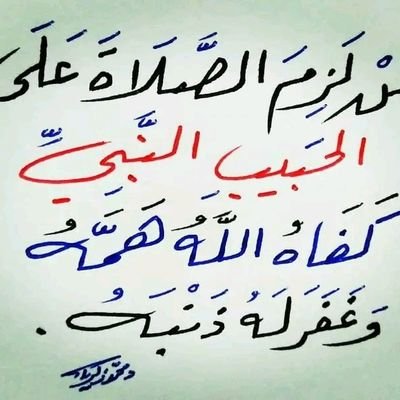 مَنْ لَزِمَ الصَّلَاةَ عَلَى
الحَبِيبِ النَّبِيِّ
كَفَاهُ اللَّهُ هَمَّهُ
وَغَفَرَ لَهُ ذَنْبَهُ .